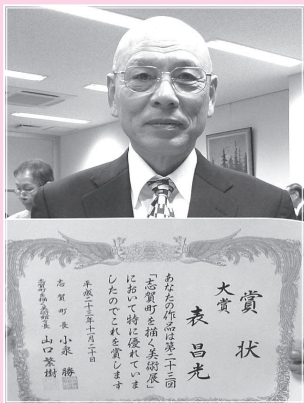 賞状
大賞
表昌光
あなたの作品は第二十三回
「志賀町を描く美術展」
において特に優れていま
したのでこれを賞します
平成二十三年十一月二十日
志賀町長 小泉勝
山口繁樹